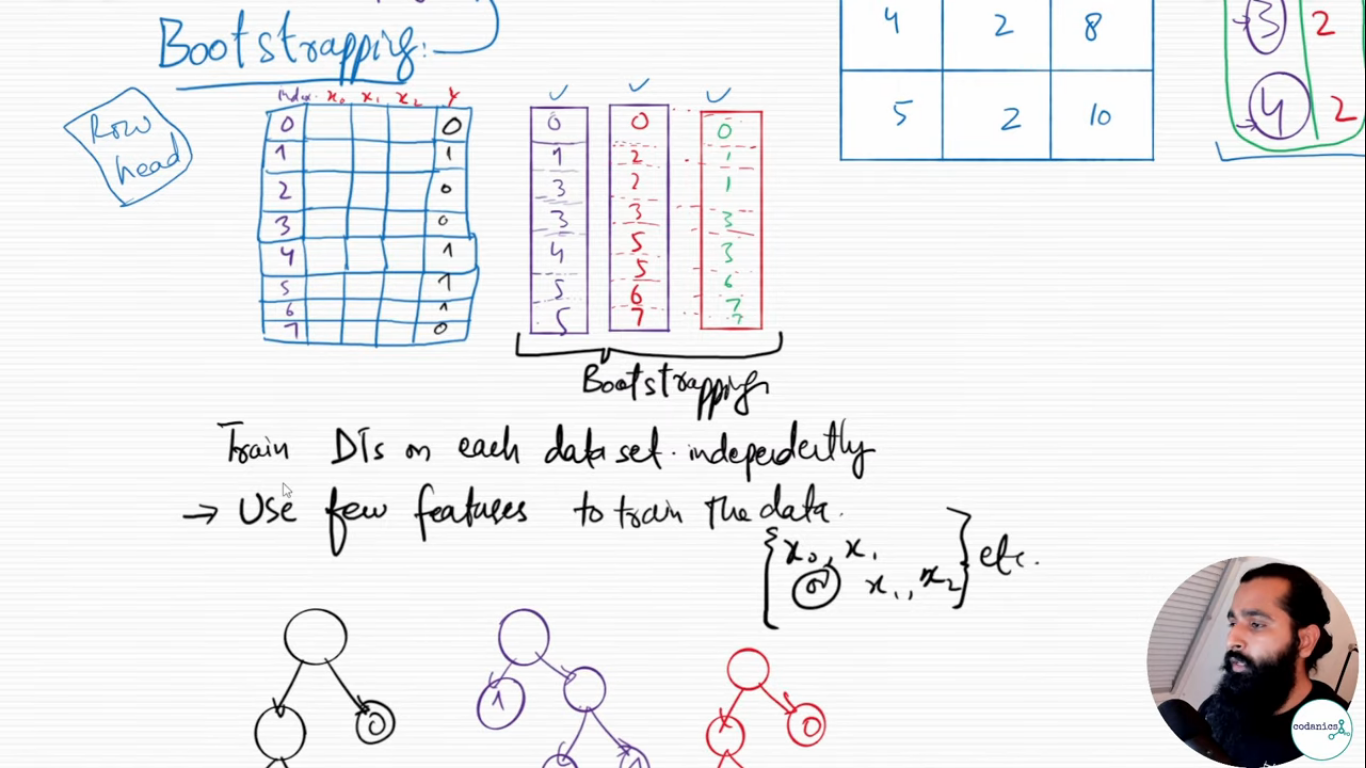 Bootstrapping:
4 2 8
5 2 10
3 2
4 2
Row
head
Index x₀ x₁ x₂ y
0 0
1 1
2 0
3 0
4 1
5 1
6 1
7 0
0 0 0
1 2 1
3 2 1
3 3 3
4 5 3
5 5 6
5 6 7
7 7
Bootstrapping
Train DTs on each data set. independently
→ Use few features to train the data.
{x₀, x₁
or x₁, x₂} etc.
1
0
0
1
codanics